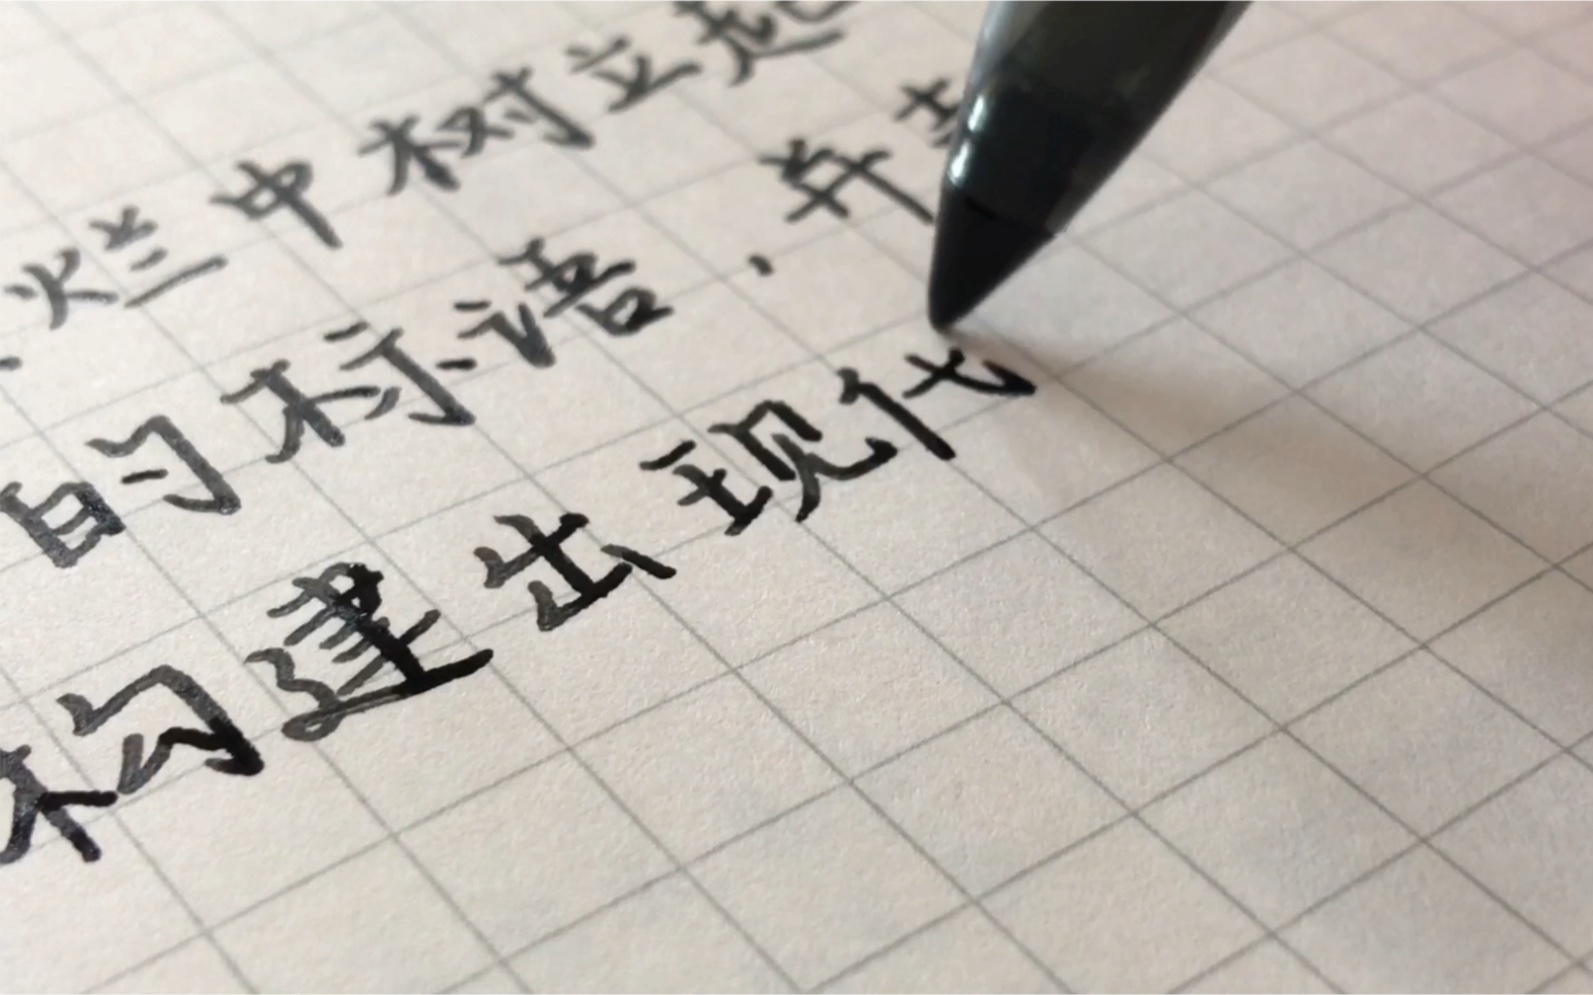 烂中树立起
的标语,并
构建出现代